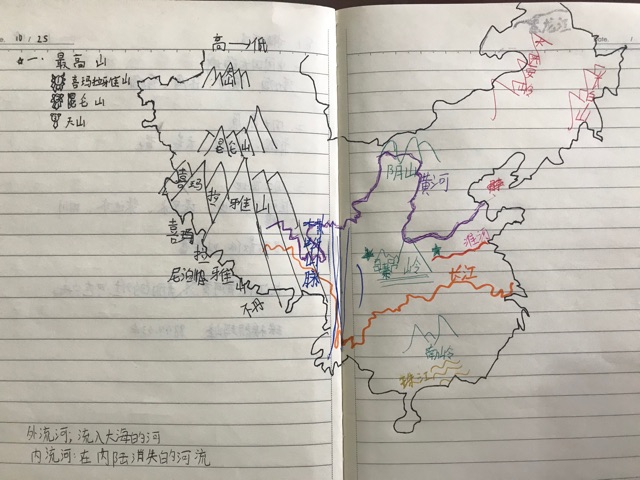 10 / 25
高→低
一、最高山
喜玛拉雅山
昆仑山
天山
昆仑山
喜玛拉雅山
喜
拉
尼泊尔
雅
山
不丹
横断山脉
黑龙江
大兴安岭
阴山
黄河
淮河
秦岭
长江
南岭
珠江
外流河；流入大海的河
内流河：在内陆消失的河流